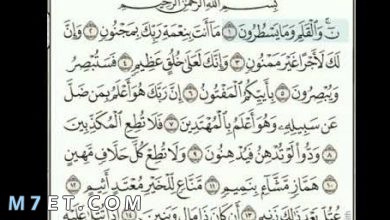 بِسْمِ اللَّهِ الرَّحْمَٰنِ الرَّحِيمِ
نٓ ۚ وَالْقَلَمِ وَمَا يَسْطُرُونَ ١ مَا أَنتَ بِنِعْمَةِ رَبِّكَ بِمَجْنُونٍ ٢ وَإِنَّ
لَكَ لَأَجْرًا غَيْرَ مَمْنُونٍ ٣ وَإِنَّكَ لَعَلَىٰ خُلُقٍ عَظِيمٍ ٤ فَسَتُبْصِرُ
وَيُبْصِرُونَ ٥ بِأَييِّكُمُ الْمَفْتُونُ ٦ إِنَّ رَبَّكَ هُوَ أَعْلَمُ بِمَن ضَلَّ
عَن سَبِيلِهِ وَهُوَ أَعْلَمُ بِالْمُهْتَدِينَ ٧ فَلَا تُطِعِ الْمُكَذِّبِينَ
٨ وَدُّوا لَوْ تُدْهِنُ فَيُدْهِنُونَ ٩ وَلَا تُطِعْ كُلَّ حَلَّافٍ مَّهِينٍ
١٠ هَمَّازٍ مَّشَّاءٍ بِنَمِيمٍ ١١ مَّنَّاعٍ لِّلْخَيْرِ مُعْتَدٍ أَثِيمٍ ١٢
عُتُلٍّ بَعْدَ ذَٰلِكَ زَنِيمٍ ١٣ أَن كَانَ ذَا مَالٍ وَبَنِينَ ١٤ إِذَا تُتْلَىٰ عَلَيْهِ
M7ET.COM